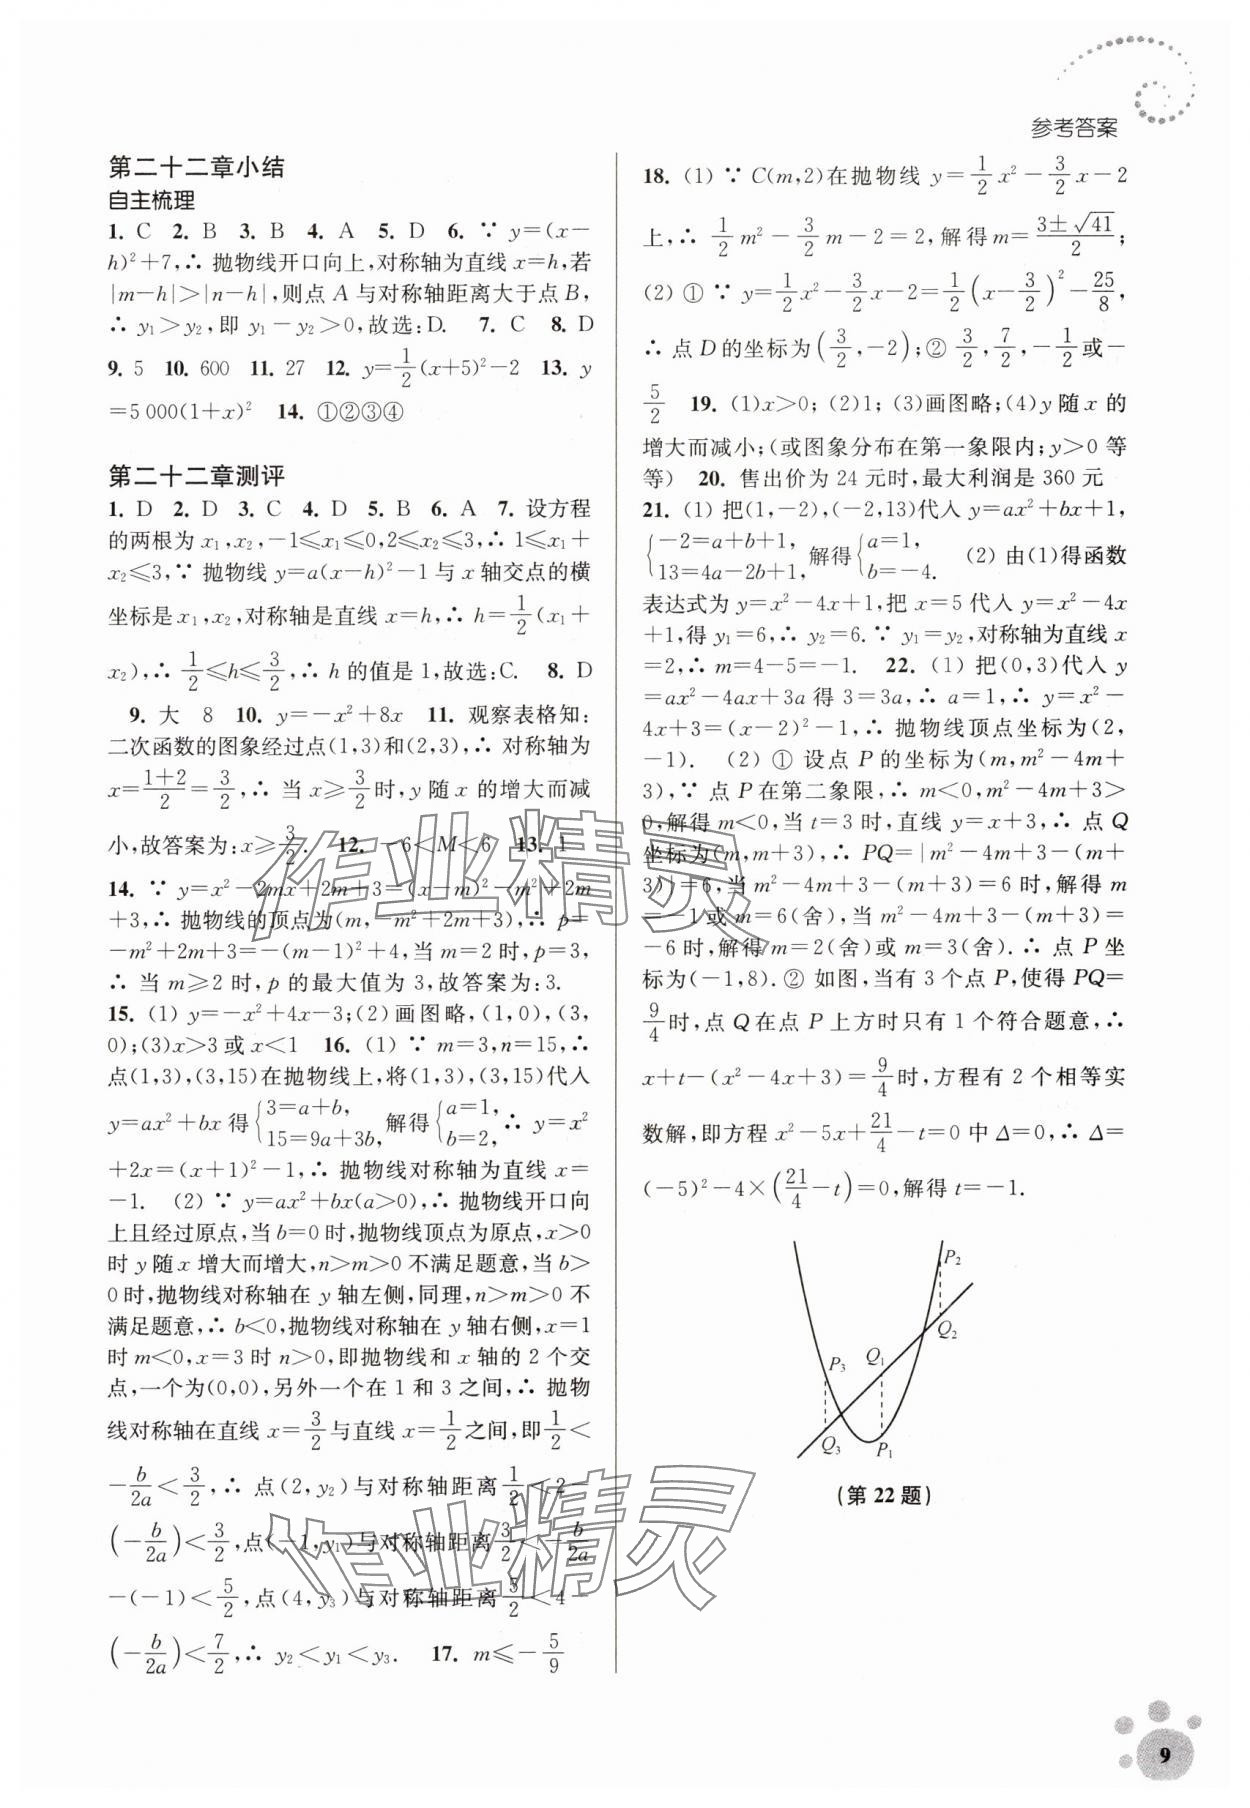 参考答案
第二十二章小结
自主梳理
1. C 2. B 3. B 4. A 5. D 6. ∵ y=(x-
h)²+7,∴ 抛物线开口向上,对称轴为直线 x=h,若
|m-h|>|n-h|,则点 A 与对称轴距离大于点 B,
∴ y₁>y₂,即 y₁-y₂>0,故选:D. 7. C 8. D
9. 5 10. 600 11. 27 12. y=1/2(x+5)²-2 13. y
=5 000(1+x)² 14. ①②③④
第二十二章测评
1. D 2. D 3. C 4. D 5. B 6. A 7. 设方程
的两根为 x₁,x₂,-1≤x₁≤0,2≤x₂≤3,∴ 1≤x₁+
x₂≤3,∵ 抛物线 y=a(x-h)²-1与 x 轴交点的横
坐标是 x₁,x₂,对称轴是直线 x=h,∴ h=1/2(x₁+
x₂),∴ 1/2≤h≤3/2,∴ h 的值是 1,故选:C. 8. D
9. 大 8 10. y=-x²+8x 11. 观察表格知:
二次函数的图象经过点(1,3)和(2,3),∴ 对称轴为
x=(1+2)/2=3/2,∴ 当 x≥3/2时,y 随 x 的增大而减
小,故答案为:x≥3/2. 12. -6<M<6 13. 1
14. ∵ y=x²-2mx+2m+3=(x-m)²-m²+2m
+3,∴ 抛物线的顶点为(m,-m²+2m+3),∴ p=
-m²+2m+3=-(m-1)²+4,当 m=2 时,p=3,
∴ 当 m≥2 时,p 的最大值为 3,故答案为:3.
15. (1) y=-x²+4x-3;(2)画图略,(1,0),(3,
0);(3)x>3 或 x<1 16. (1) ∵ m=3,n=15,∴
点(1,3),(3,15)在抛物线上,将(1,3),(3,15)代入
y=ax²+bx 得{3=a+b, 15=9a+3b, 解得{a=1, b=2, ∴ y=x²
+2x=(x+1)²-1,∴ 抛物线对称轴为直线 x=
-1. (2) ∵ y=ax²+bx(a>0),∴ 抛物线开口向
上且经过原点,当 b=0 时,抛物线顶点为原点,x>0
时 y 随 x 增大而增大,n>m>0 不满足题意,当 b>
0 时,抛物线对称轴在 y 轴左侧,同理,n>m>0 不
满足题意,∴ b<0,抛物线对称轴在 y 轴右侧,x=1
时 m<0,x=3 时 n>0,即抛物线和 x 轴的 2 个交
点,一个为(0,0),另外一个在 1 和 3 之间,∴ 抛物
线对称轴在直线 x=3/2与直线 x=1/2之间,即1/2<
-b/2a<3/2,∴ 点(2,y₂)与对称轴距离1/2<2-
(-b/2a)<3/2,点(-1,y₁)与对称轴距离3/2<-b/2a
-(-1)<5/2,点(4,y₃)与对称轴距离5/2<4-
(-b/2a)<7/2,∴ y₂<y₁<y₃. 17. m≤-5/9
18. (1) ∵ C(m,2)在抛物线 y=1/2x²-3/2x-2
上,∴ 1/2m²-3/2m-2=2,解得 m=(3±√41)/2;
(2) ① ∵ y=1/2x²-3/2x-2=1/2(x-3/2)²-25/8,
∴ 点 D 的坐标为(3/2,-2);② 3/2,7/2,-1/2或-
5/2 19. (1)x>0;(2)1;(3)画图略;(4)y 随 x 的
增大而减小;(或图象分布在第一象限内;y>0 等
等) 20. 售出价为 24 元时,最大利润是 360 元
21. (1) 把(1,-2),(-2,13)代入 y=ax²+bx+1,
{-2=a+b+1, 13=4a-2b+1, 解得{a=1, b=-4. (2) 由(1)得函数
表达式为 y=x²-4x+1,把 x=5 代入 y=x²-4x
+1,得 y₁=6,∴ y₂=6.∵ y₁=y₂,对称轴为直线 x
=2,∴ m=4-5=-1. 22. (1) 把(0,3)代入 y
=ax²-4ax+3a 得 3=3a,∴ a=1,∴ y=x²-
4x+3=(x-2)²-1,∴ 抛物线顶点坐标为(2,
-1). (2) ① 设点 P 的坐标为(m,m²-4m+
3),∵ 点 P 在第二象限,∴ m<0,m²-4m+3>
0,解得 m<0,当 t=3 时,直线 y=x+3,∴ 点 Q
坐标为(m,m+3),∴ PQ=|m²-4m+3-(m+
3)|=6,当 m²-4m+3-(m+3)=6 时,解得 m
=-1 或 m=6(舍),当 m²-4m+3-(m+3)=
-6 时,解得 m=2(舍)或 m=3(舍).∴ 点 P 坐
标为(-1,8).② 如图,当有 3 个点 P,使得 PQ=
9/4时,点 Q 在点 P 上方时只有 1 个符合题意,∴
x+t-(x²-4x+3)=9/4时,方程有 2 个相等实
数解,即方程 x²-5x+21/4-t=0 中 Δ=0,∴ Δ=
(-5)²-4×(21/4-t)=0,解得 t=-1.
P₂
Q₂
Q₁
P₃
Q₃
P₁
(第 22 题)
作业精灵
作业精灵
9